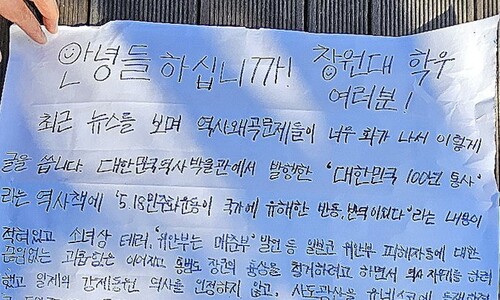 안녕들 하십니까! 창원대 학우
여러분!
최근 뉴스를 보며 역사왜곡문제들이 너무 화가 나서 이렇게
글을 씁니다. 대한민국역사박물관에서 발행한 '대한민국 100년 통사'
라는 역사책에 '5.18민주화운동이 국가에 유해한 반동, 반역이었다' 라는 내용이
적혀있고 소녀상 테러, '위안부는 매춘부' 발언 등 일본군 위안부 피해자들에 대한
끊임없는 고통은 이어지고 홍범도 장군의 흉상을 철거하려고 하면서 역사 지우기를 하려
했고 일제의 강제동원 역사를 인정하지 않고, 사도광산을 유네스코에